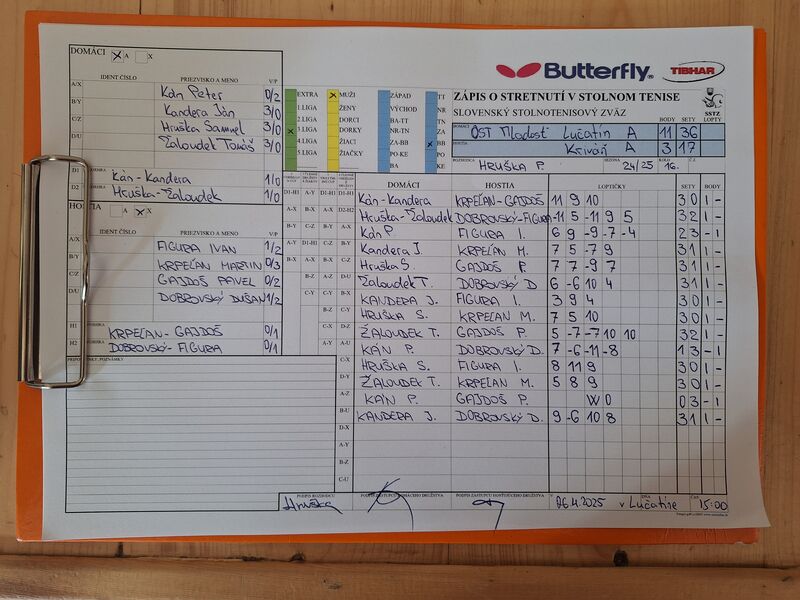 DOMÁCI X A X
Butterfly TIBHAR
IDENT ČÍSLO PRIEZVISKO A MENO V/P
ZÁPIS O STRETNUTÍ V STOLNOM TENISE
SLOVENSKÝ STOLNOTENISOVÝ ZVÄZ
SSTZ
BODY SETY LOPTY
A/X Kán Peter 0/2
B/Y Kandera Ján 3/0
C/Z Hruška Samuel 3/0
D/U Žaloudek Tomáš 3/0
D1 Kán-Kandera 1/0
D2 Hruška-Žaloudek 1/0
EXTRA
1.LIGA
2.LIGA
X 3.LIGA
4.LIGA
5.LIGA
X MUŽI
ŽENY
DORCI
DORKY
ŽIACI
ŽIAČKY
ZÁPAD
VÝCHOD
BA-TT
NR-TN
ZA-BB
PO-KE
BA
TT
NR
TN
ZA
X BB
PO
KE
DOMÁCI OST Mladosť Lučatín A 11 36
HOSTIA Kriváň A 3 17
ROZHODCA HRUŠKA P. SEZÓNA 24/25 16.
HOSTIA A X X
IDENT ČÍSLO PRIEZVISKO A MENO V/P
A/X FIGURA IVAN 1/2
B/Y KRPEĽAN MARTIN 0/3
C/Z GAJDOŠ PAVEL 0/2
D/U DOBROVSKÝ DUŠAN 1/2
H1 KRPEĽAN-GAJDOŠ 0/1
H2 DOBROVSKÝ-FIGURA 0/1
PRIPOMIENKY, POZNÁMKY
DOMÁCI HOSTIA LOPTIČKY SETY BODY
Kán-Kandera KRPEĽAN-GAJDOŠ 11 9 10 3 0 1 -
Hruška-Žaloudek DOBROVSKÝ-FIGURA -11 5 -11 9 5 3 2 1 -
Kán P. FIGURA I. 6 9 -9 -7 -4 2 3 - 1
Kandera J. KRPEĽAN M. 7 5 -7 9 3 1 1 -
Hruška S. GAJDOŠ P. 7 7 -9 7 3 1 1 -
Žaloudek T. DOBROVSKÝ D 6 -6 10 4 3 1 1 -
KANDERA J. FIGURA I. 3 9 4 3 0 1 -
HRUŠKA S. KRPEĽAN M. 7 5 10 3 0 1 -
ŽALOUDEK T. GAJDOŠ P. 5 -7 -7 10 10 3 2 1 -
KÁN P. DOBROVSKÝ D. 7 -6 -11 -8 1 3 - 1
HRUŠKA S. FIGURA I. 8 11 9 3 0 1 -
ŽALOUDEK T. KRPEĽAN M. 5 8 9 3 0 1 -
KÁN P. GAJDOŠ P. WO 0 3 - 1
KANDERA J. DOBROVSKÝ D. 9 -6 10 8 3 1 1 -
PODPIS ROZHODCU Hruška
PODPIS ZÁSTUPCU DOMÁCEHO DRUŽSTVA
PODPIS ZÁSTUPCU HOSŤUJÚCEHO DRUŽSTVA
V DŇA 06.4.2025 v Lučatíne ČAS 15:00